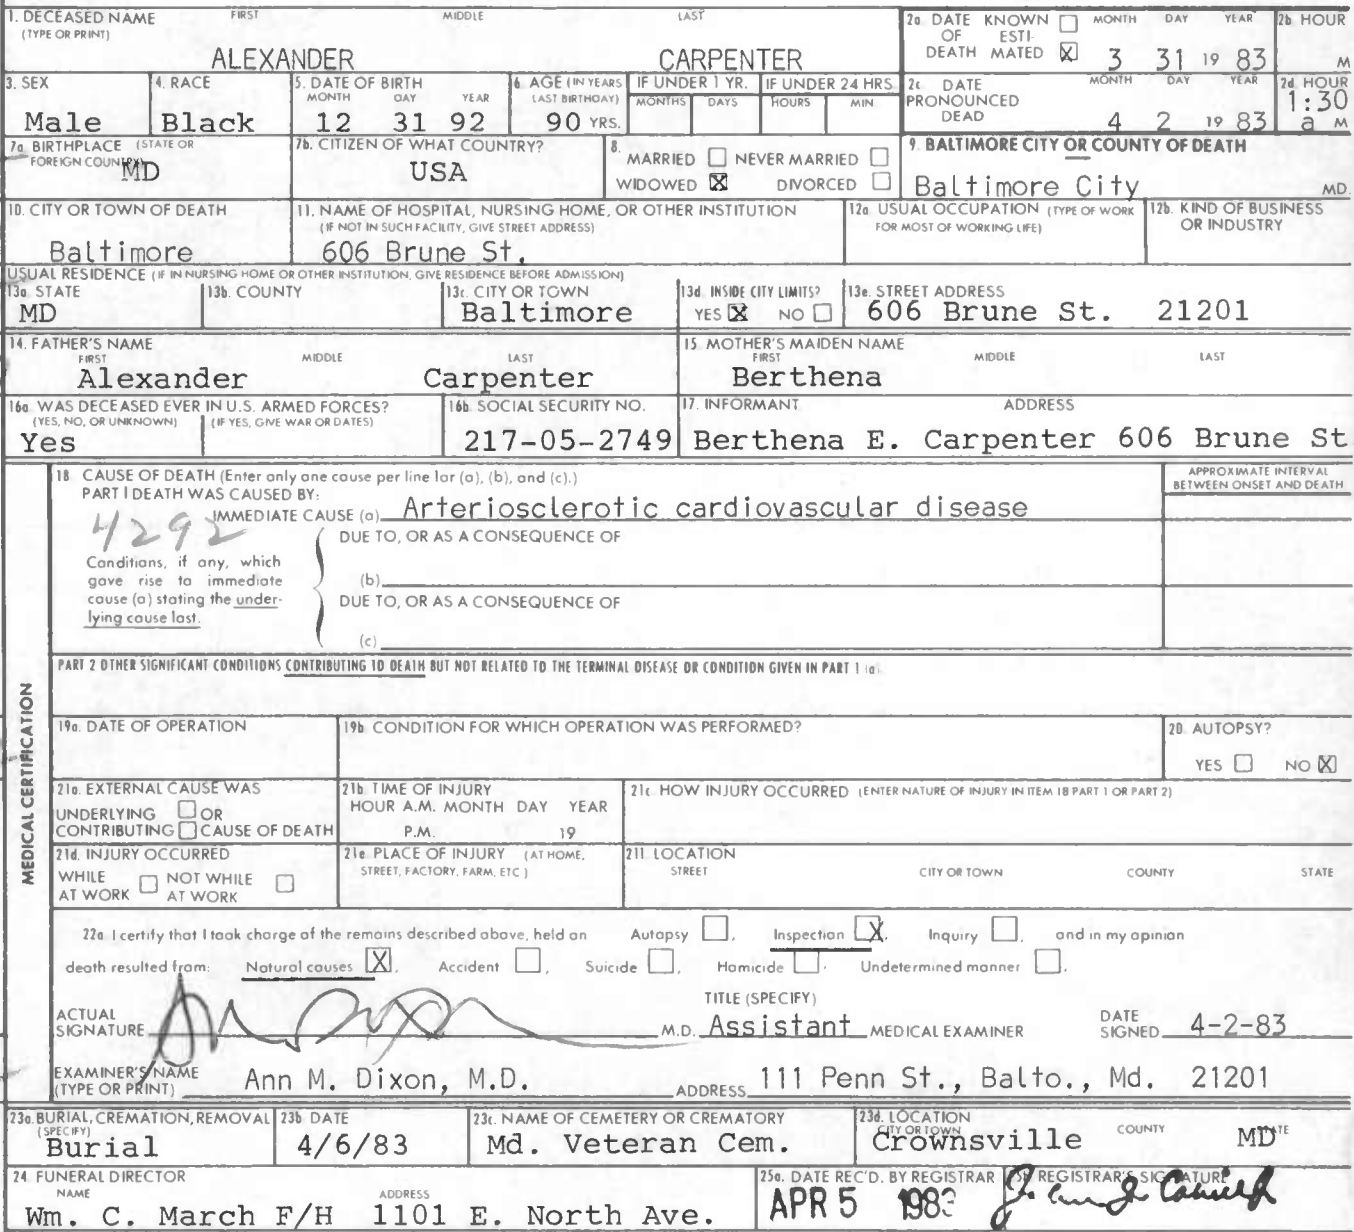 1. DECEASED NAME FIRST MIDDLE LAST
(TYPE OR PRINT)
ALEXANDER CARPENTER
2a DATE KNOWN ☐ MONTH DAY YEAR
OF ESTI-
DEATH MATED ☒ 3 31 19 83
2b HOUR
M
3. SEX
Male
4. RACE
Black
5. DATE OF BIRTH
MONTH DAY YEAR
12 31 92
6. AGE (IN YEARS
(LAST BIRTHDAY)
90 YRS.
IF UNDER 1 YR.
MONTHS DAYS
IF UNDER 24 HRS
HOURS MIN
2c DATE MONTH DAY YEAR
PRONOUNCED
DEAD 4 2 19 83
2d HOUR
1:30
a M
7a BIRTHPLACE (STATE OR
FOREIGN COUNTRY)
MD
7b. CITIZEN OF WHAT COUNTRY?
USA
8.
MARRIED ☐ NEVER MARRIED ☐
WIDOWED ☒ DIVORCED ☐
9. BALTIMORE CITY OR COUNTY OF DEATH
Baltimore City MD.
10. CITY OR TOWN OF DEATH
Baltimore
11. NAME OF HOSPITAL, NURSING HOME, OR OTHER INSTITUTION
(IF NOT IN SUCH FACILITY, GIVE STREET ADDRESS)
606 Brune St.
12a. USUAL OCCUPATION (TYPE OF WORK
FOR MOST OF WORKING LIFE)
12b. KIND OF BUSINESS
OR INDUSTRY
USUAL RESIDENCE (IF IN NURSING HOME OR OTHER INSTITUTION, GIVE RESIDENCE BEFORE ADMISSION)
13a. STATE
MD
13b. COUNTY
13c. CITY OR TOWN
Baltimore
13d. INSIDE CITY LIMITS?
YES ☒ NO ☐
13e. STREET ADDRESS
606 Brune St. 21201
14. FATHER'S NAME
FIRST MIDDLE LAST
Alexander Carpenter
15 MOTHER'S MAIDEN NAME
FIRST MIDDLE LAST
Berthena
16a. WAS DECEASED EVER IN U.S. ARMED FORCES?
(YES, NO, OR UNKNOWN) (IF YES, GIVE WAR OR DATES)
Yes
16b. SOCIAL SECURITY NO.
217-05-2749
17. INFORMANT ADDRESS
Berthena E. Carpenter 606 Brune St
18 CAUSE OF DEATH (Enter only one cause per line for (a), (b), and (c).)
PART I DEATH WAS CAUSED BY:
APPROXIMATE INTERVAL
BETWEEN ONSET AND DEATH
4292
IMMEDIATE CAUSE (a) Arteriosclerotic cardiovascular disease
DUE TO, OR AS A CONSEQUENCE OF
Conditions, if any, which
gave rise to immediate
cause (a) stating the under-
lying cause last.
(b)
DUE TO, OR AS A CONSEQUENCE OF
(c)
PART 2 OTHER SIGNIFICANT CONDITIONS CONTRIBUTING TO DEATH BUT NOT RELATED TO THE TERMINAL DISEASE OR CONDITION GIVEN IN PART 1 (a)
MEDICAL CERTIFICATION
19a. DATE OF OPERATION
19b CONDITION FOR WHICH OPERATION WAS PERFORMED?
20 AUTOPSY?
YES ☐ NO ☒
21a. EXTERNAL CAUSE WAS
UNDERLYING ☐ OR
CONTRIBUTING ☐ CAUSE OF DEATH
21b TIME OF INJURY
HOUR A.M. MONTH DAY YEAR
P.M. 19
21c HOW INJURY OCCURRED (ENTER NATURE OF INJURY IN ITEM 18 PART 1 OR PART 2)
21d. INJURY OCCURRED
WHILE ☐ NOT WHILE ☐
AT WORK AT WORK
21e PLACE OF INJURY (AT HOME,
STREET, FACTORY, FARM, ETC )
21f LOCATION
STREET CITY OR TOWN COUNTY STATE
22a I certify that I took charge of the remains described above, held an Autopsy ☐, Inspection ☒, Inquiry ☐, and in my opinion
death resulted from: Natural causes ☒, Accident ☐, Suicide ☐, Homicide ☐, Undetermined manner ☐.
ACTUAL
SIGNATURE Ann Dixon M.D.
TITLE (SPECIFY)
Assistant MEDICAL EXAMINER
DATE
SIGNED 4-2-83
EXAMINER'S NAME
(TYPE OR PRINT) Ann M. Dixon, M.D.
ADDRESS 111 Penn St., Balto., Md. 21201
23a. BURIAL, CREMATION, REMOVAL
(SPECIFY)
Burial
23b DATE
4/6/83
23c. NAME OF CEMETERY OR CREMATORY
Md. Veteran Cem.
23d. LOCATION
CITY OR TOWN COUNTY STATE
Crownsville MD
24 FUNERAL DIRECTOR
NAME ADDRESS
Wm. C. March F/H 1101 E. North Ave.
25a. DATE REC'D. BY REGISTRAR
APR 5 1983
25b REGISTRAR'S SIGNATURE